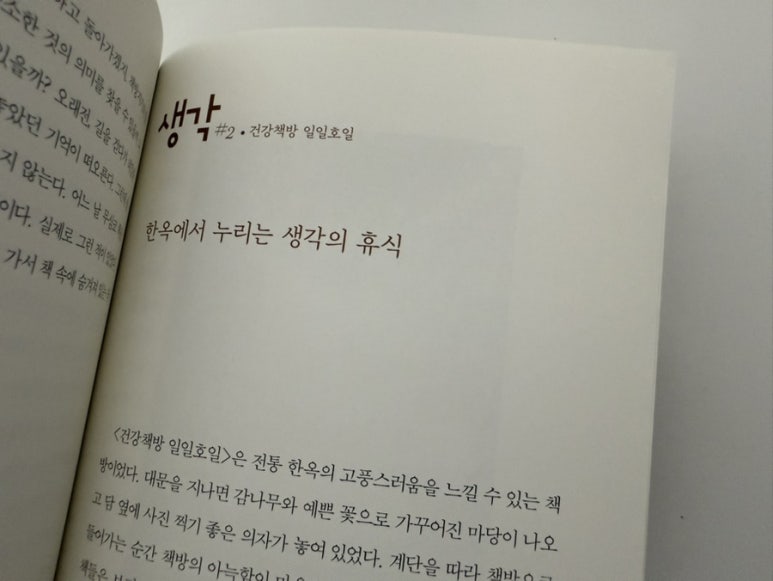 하고 돌아가겠지,
소한 것의 의미를 찾을 수
있을까? 오래전, 길을 걷다가
놓았던 기억이 떠오른다.
지 않는다. 어느 날 무심코
이다. 실제로 그런 적이 있었다
가서 책 속에 숨겨져 있는
생각 #2 • 건강책방 일일호일
한옥에서 누리는 생각의 휴식
<건강책방 일일호일>은 전통 한옥의 고풍스러움을 느낄 수 있는 책
방이었다. 대문을 지나면 감나무와 예쁜 꽃으로 가꾸어진 마당이 나오
고 담 옆에 사진 찍기 좋은 의자가 놓여 있었다. 계단을 따라 책방으로
들어가는 순간 책방의 아늑함이
책들은